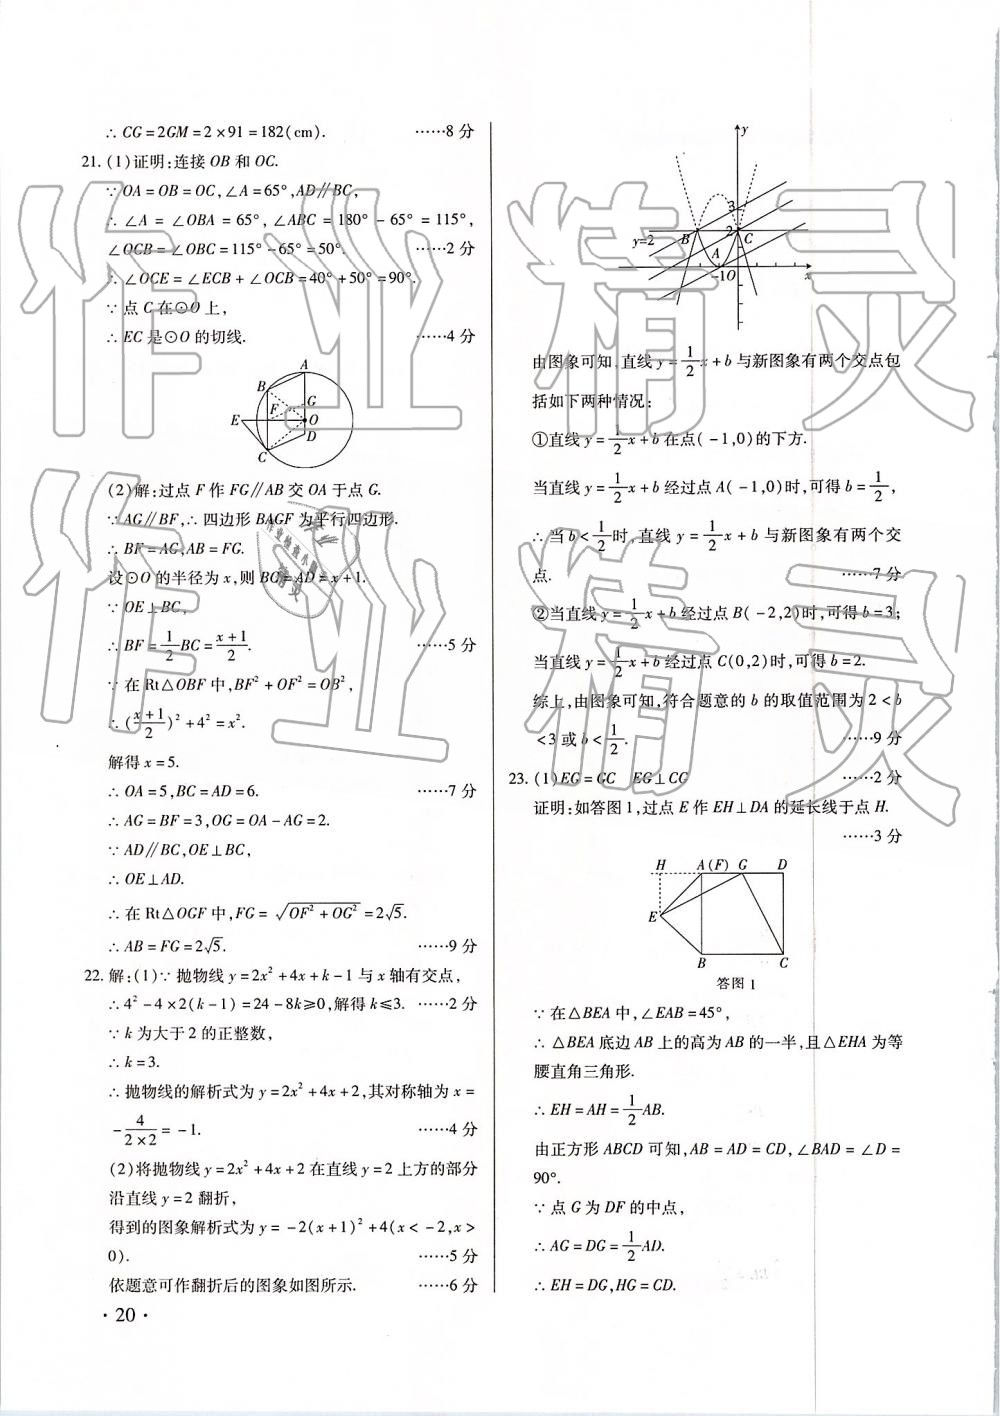 ∴ CG=2GM=2×91=182(cm). ……8分
21. (1)证明:连接 OB 和 OC.
∵ OA=OB=OC,∠A=65°,AD∥BC,
∴ ∠A=∠OBA=65°,∠ABC=180°-65°=115°,
∠OCB=∠OBC=115°-65°=50°. ……2分
∴ ∠OCE=∠ECB+∠OCB=40°+50°=90°.
∵ 点 C 在⊙O 上,
∴ EC 是⊙O 的切线. ……4分
A
B
G
E F O
D
C
(2)解:过点 F 作 FG∥AB 交 OA 于点 G.
∵ AG∥BF,∴ 四边形 BAGF 为平行四边形.
∴ BF=AG,AB=FG.
设⊙O 的半径为 x,则 BC=AD=x+1.
∵ OE⊥BC,
∴ BF=1/2BC=(x+1)/2. ……5分
∵ 在 Rt△OBF 中,BF²+OF²=OB²,
∴ ((x+1)/2)²+4²=x².
解得 x=5.
∴ OA=5,BC=AD=6. ……7分
∴ AG=BF=3,OG=OA-AG=2.
∵ AD∥BC,OE⊥BC,
∴ OE⊥AD.
∴ 在 Rt△OGF 中,FG=√(OF²+OG²)=2√5.
∴ AB=FG=2√5. ……9分
22. 解:(1)∵ 抛物线 y=2x²+4x+k-1 与 x 轴有交点,
∴4²-4×2(k-1)=24-8k≥0,解得 k≤3. ……2分
∵ k 为大于 2 的正整数,
∴ k=3.
∴ 抛物线的解析式为 y=2x²+4x+2,其对称轴为 x=
-4/(2×2)=-1. ……4分
(2)将抛物线 y=2x²+4x+2 在直线 y=2 上方的部分
沿直线 y=2 翻折,
得到的图象解析式为 y=-2(x+1)²+4(x<-2,x>
0). ……5分
依题意可作翻折后的图象如图所示. ……6分
· 20 ·
y
3
2
y=2 B C
A
-1O x
由图象可知,直线 y=1/2x+b 与新图象有两个交点包
括如下两种情况:
①直线 y=1/2x+b 在点(-1,0)的下方.
当直线 y=1/2x+b 经过点 A(-1,0)时,可得 b=1/2,
∴ 当 b<1/2时,直线 y=1/2x+b 与新图象有两个交
点. ……7分
②当直线 y=1/2x+b 经过点 B(-2,2)时,可得 b=3;
当直线 y=1/2x+b 经过点 C(0,2)时,可得 b=2.
综上,由图象可知,符合题意的 b 的取值范围为 2<b
<3 或 b<1/2. ……9分
23. (1)EG=GC EG⊥CG ……2分
证明:如答图 1,过点 E 作 EH⊥DA 的延长线于点 H.
……3分
H A(F) G D
E
B C
答图 1
∵ 在△BEA 中,∠EAB=45°,
∴ △BEA 底边 AB 上的高为 AB 的一半,且△EHA 为等
腰直角三角形.
∴ EH=AH=1/2AB.
由正方形 ABCD 可知,AB=AD=CD,∠BAD=∠D=
90°.
∵ 点 G 为 DF 的中点,
∴ AG=DG=1/2AD.
∴ EH=DG,HG=CD.
作业精灵
作业精灵
作业检查小
精灵